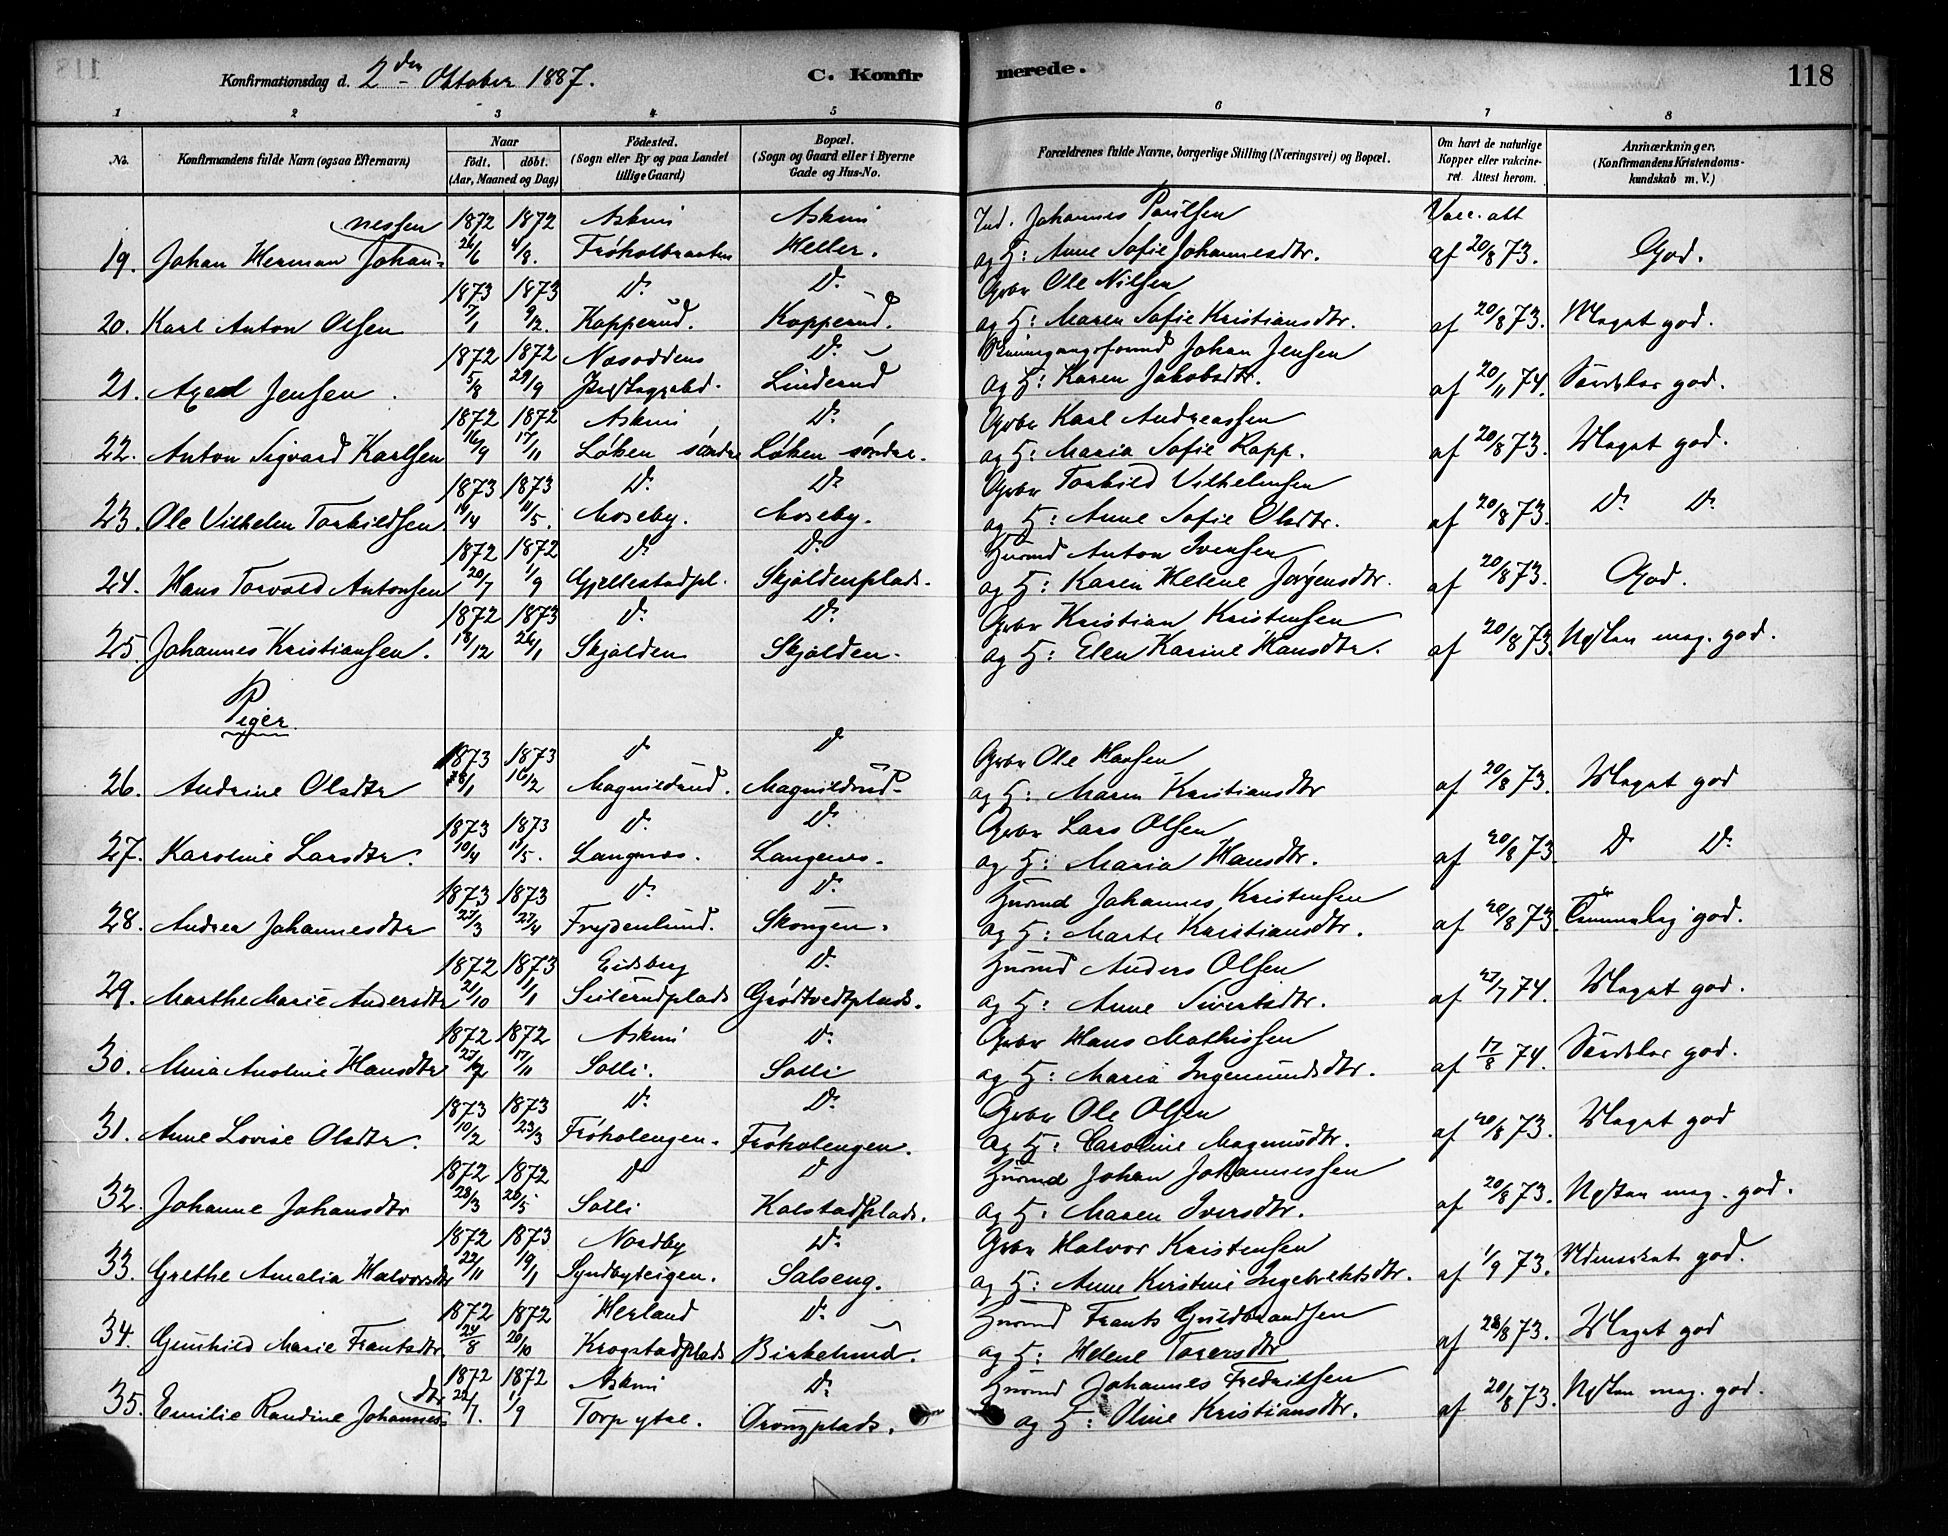 Konfirmationsdag d. 2den Oktober 1887. C. Konfirmerede. 118
1 2 3 4 5 6 7 8
No. Konfirmandens fulde Navn (ogsaa Efternavn) Naar født, døbt. (Aar, Maaned og Dag) Fødested. (Sogn eller By og paa Landet tillige Gaard) Bopæl. (Sogn og Gaard eller i Byerne Gade og Hus-No. Forældrenes fulde Navne, borgerlige Stilling (Næringsvei) og Bopæl. Om havt de naturlige Kopper eller vakcineret. Attest herom. Anmærkninger, (Konfirmandens Kristendomskundskab m. V.)
nessen 1872 1872 Askim Askim Ind. Johannes Paulsen Vacc. att
19. Johan Herman Johan- 26/6 4/8. Frøholtbraaten Heller. og H: Anne Sofie Johannesdtr. af 20/8 73. God.
1873 1873 Do. Do. Gbr Ole Nilsen
20. Karl Anton Olsen 7/1 9/2. Kopperud. Kopperud. og H: Maren Sofie Kristiansdtr. af 20/8 73. Meget god.
1872 1872 Nesoddens Do. Johan Jensen
21. Axel Jensen. 5/8 29/9 Præstegjeld. Linderud og H: Karen Jakobsdtr. af 20/11 74. Særdeles god.
1872 1872 Askim Do. Gbr Karl Andreassen
22. Anton Sigvard Karlsen 16/9 17/11 Løken søndre Løken søndre. og H: Maria Sofie Rapp. af 20/8 73. Meget god.
1873 1873 Do. Do. Gbr Torkild Vilhelmsen
23. Ole Vilhelm Torkildsen 14/4 11/5. Moseby. Moseby. og H: Anne Sofie Olsdtr. af 20/8 73. Do. Do.
1872 1872 Do. Do. Husmd Anton Ivensen
24. Hans Torvald Antonsen 20/7 1/9 Gjellestadpl. Skjoldenplads. og H: Karen Helene Jørgensdtr. af 20/8 73. God.
1872 1873 Do. Do. Gbr Kristian Kristensen
25. Johannes Kristiansen. 18/12 26/1 Skjolden Skjolden. og H: Elen Karine Hansdtr. af 20/8 73. Næsten meg. god.
Piger
1873 1873 Do Do Gbr Ole Hansen
26. Andrine Olsdtr 28/1 16/2 Magnildrud. Magnildrud. og H: Maren Kristiansdtr af 20/8 73. Meget god
1873 1873 Do. Do. Gbr Lars Olsen
27. Karoline Larsdtr. 10/4 11/5. Langnes. Langenes. og H: Maria Hansdtr. af 20/8 73. Do Do.
1873 1873 Do. Do. Husmd Johannes Kristensen
28. Andrea Johannesdtr 27/3 27/4 Frydenlund. Skougen. og H: Marte Kristiansdtr. af 20/8 73. Temmelig god.
1872 1873 Eidsberg Do. Husmd Anders Olsen
29. Marthe Marie Andersdtr 21/10 1/1 Grødtvedtplads. og H: Anne Sivertsdtr. af 27/7 74. Meget god.
1872 1872 Askim Do. Gbr Hans Mathissen
30. Mina Anoline Hansdtr 17/11 Solli. Solli og H: Maria Ingemundsdtr. af 17/8 74. Særdeles god.
1873 1873 Do. Do. Gbr Ole Olsen
31. Anne Lovise Olsdtr. 10/2 23/3 Frøholengen. Frøholengen. og H: Caroline Magnusdtr. af 20/8 73. Meget god
1872 1872 Do Do Husmd Johan Johannessen
32. Johanne Johansdtr 28/3 26/5 Solli Kolstadplads. og H: Maren Iversdtr. af 20/8 73. Næsten meg. god.
1872 1873 Nordby Do. Gbr Halvor Kristensen
33. Grethe Amalia Halvorsdtr 22/11 19/1 Syndbyteigen. Salseng. og H: Anne Kirstine Ingebrektsdtr. af 1/9 73. Udmerket god.
1872 1872 Herland Do. Husmd Frants Guldbrandsen
34. Gunhild Marie Frantsdtr. 24/8 20/10 Krogstadplads Birkelund. og H: Helene Torersdtr af 28/8 73. Meget god
dtr 1872 1872 Askim Do. Husmd Johannes Fredriksen
35. Emilie Randine Johannes- 22/7. 1/9 Torp ytre. Onougplads. og H: Oline Kristiansdtr. af 20/8 73. Næsten meg. god.